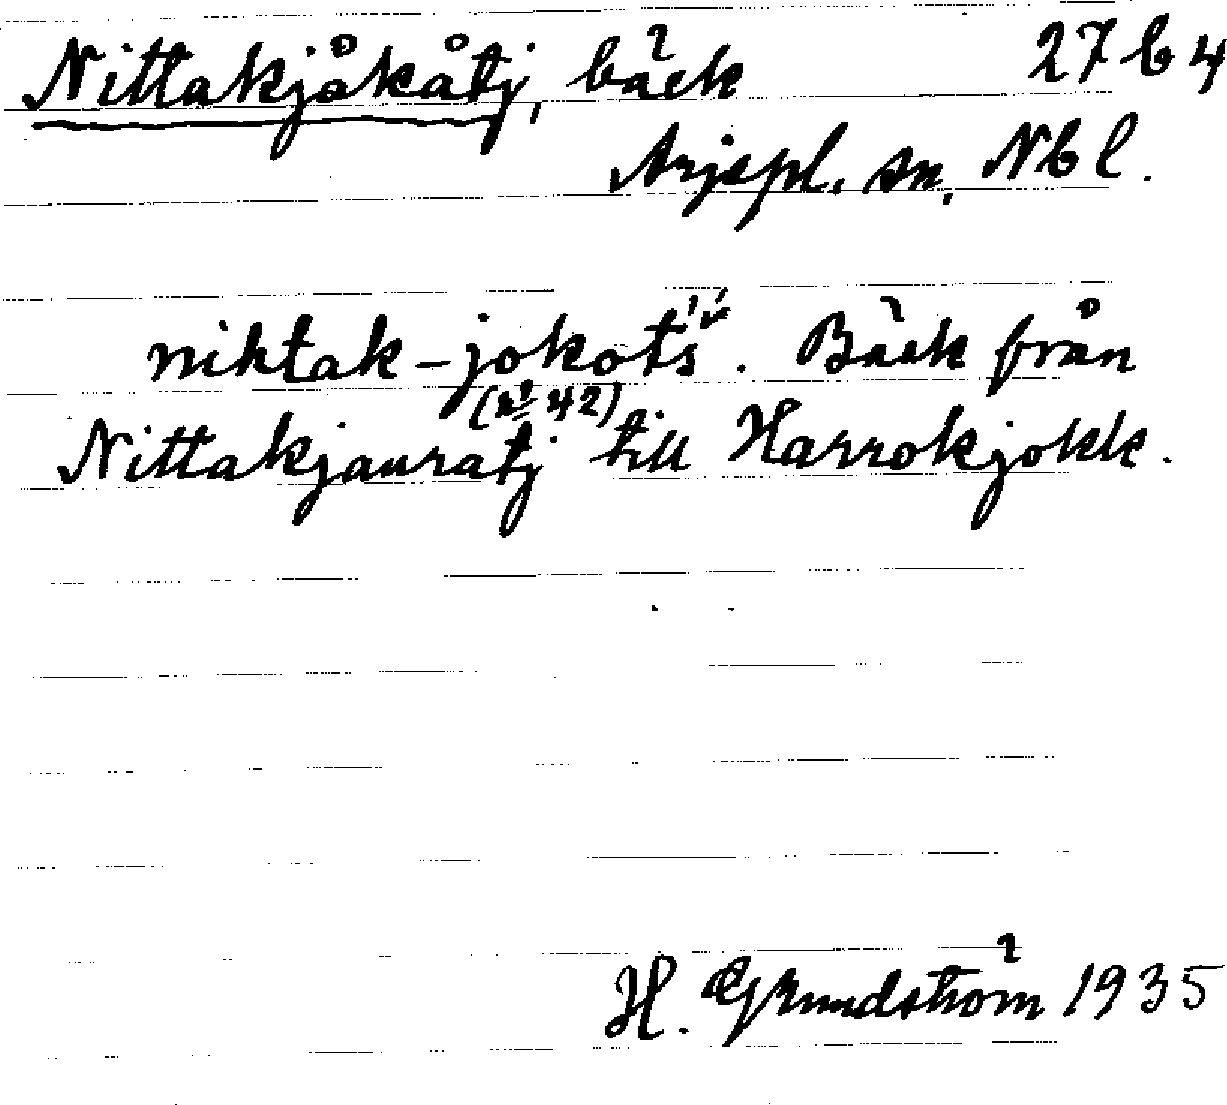 Nittakjåkåtj, bäck 27 b 4
Arjepl. sn, Nbl.
nihtak-jokots̀́. Bäck från
(nº 42)
Nittakjauratj till Harrokjokk.
H. Grundström 1935